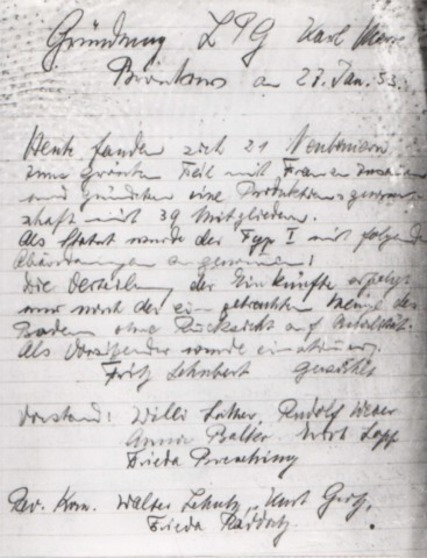 Gründung LPG Karl Marx
am 27. Jan. 53.
Heute fanden sich 21 Neubauern
zum grössten Teil mit Frauen zusammen
und gründeten eine Produktionsgenossen-
schaft mit 39 Mitgliedern.
Als Statut wurde der Typ I mit folgenden
Abänderungen angenommen!
Die Verteilung der Einkünfte erfolgt
nur nach der eingebrachten Menge des
Bodens ohne Rücksicht auf
Als Vorsitzender wurde einstimmig
Fritz Lehnbert gewählt
Vorstand: Willi Rudolf Weber
Anna Kurt
Frieda
Rev. Kom. Walter Kurt
Frieda